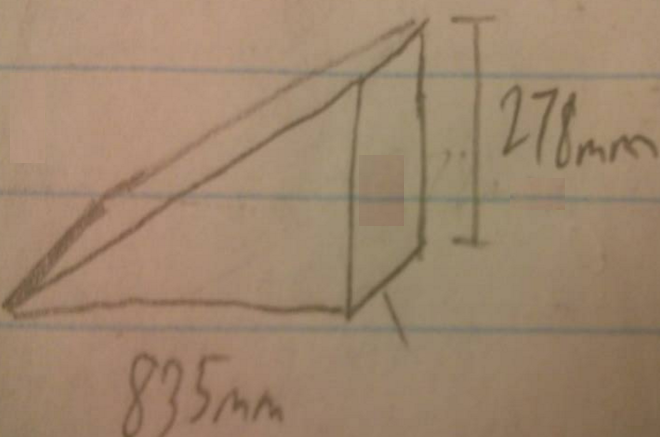 278mm
835mm